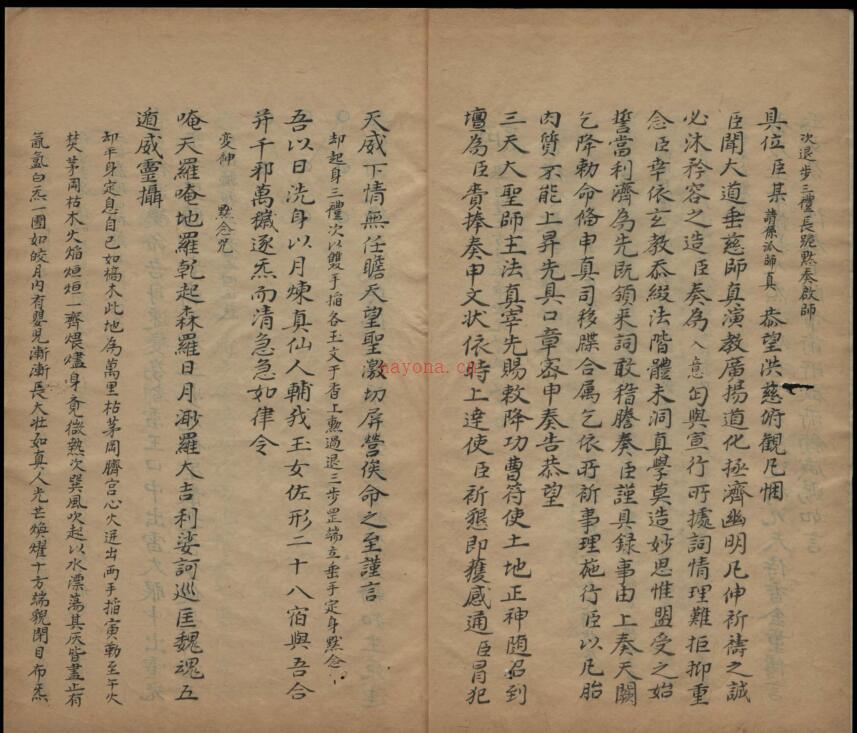 次退步三禮長跪默奏啟師
具位臣某請係派師真恭望洪慈俯観凡悃
臣聞大道垂慈師真演教廣揚道化拯濟幽明凡伸祈禱之誠
必沐矜容之造臣奏為入意匄與宣行所據詞情理難拒抑重
念臣幸依玄教忝綴法階體未洞真學莫造妙思惟盟受之始
誓當利濟為先既領来詞敢稽謄奏臣謹具録事由上奏天闕
乞降勅命俻申真司移牒合属乞依所祈事理施行臣以凡胎
肉質不能上昇先具口章密申奏告恭望
三天大聖師主法真宰先賜敕降功曹符使土地正神随召到
壇為臣賫捧奏申文状依時上達使臣祈懇即獲感通臣冒犯
天威下情無任瞻天望聖激切屏營俟命之至謹言
却起身三禮次以雙手搯各玉文于香上熏過退三步罡端立垂手定身黙念
吾以日洗身以月煉真仙人輔我玉女佐形二十八宿與吾合
并千邪萬穢逐炁而清急急如律令
变神 黙念咒
唵天羅唵地羅乾起森羅日月渺羅大吉利娑訶巡匡魏魂五
遁威靈攝
却平身定息自己如槁木此地為萬里枯茅岡臍宫心火迸出两手搯寅勒至午火
焚茅岡枯木火焰烜烜一齊煨燼身竟微熱次巽風吹起以水漂蕩其灰皆盡止有
氤氲白炁一團如皎月内有嬰児漸漸長大壯如真人光芒煥燿十方端貌閉目布炁
nayona.cn